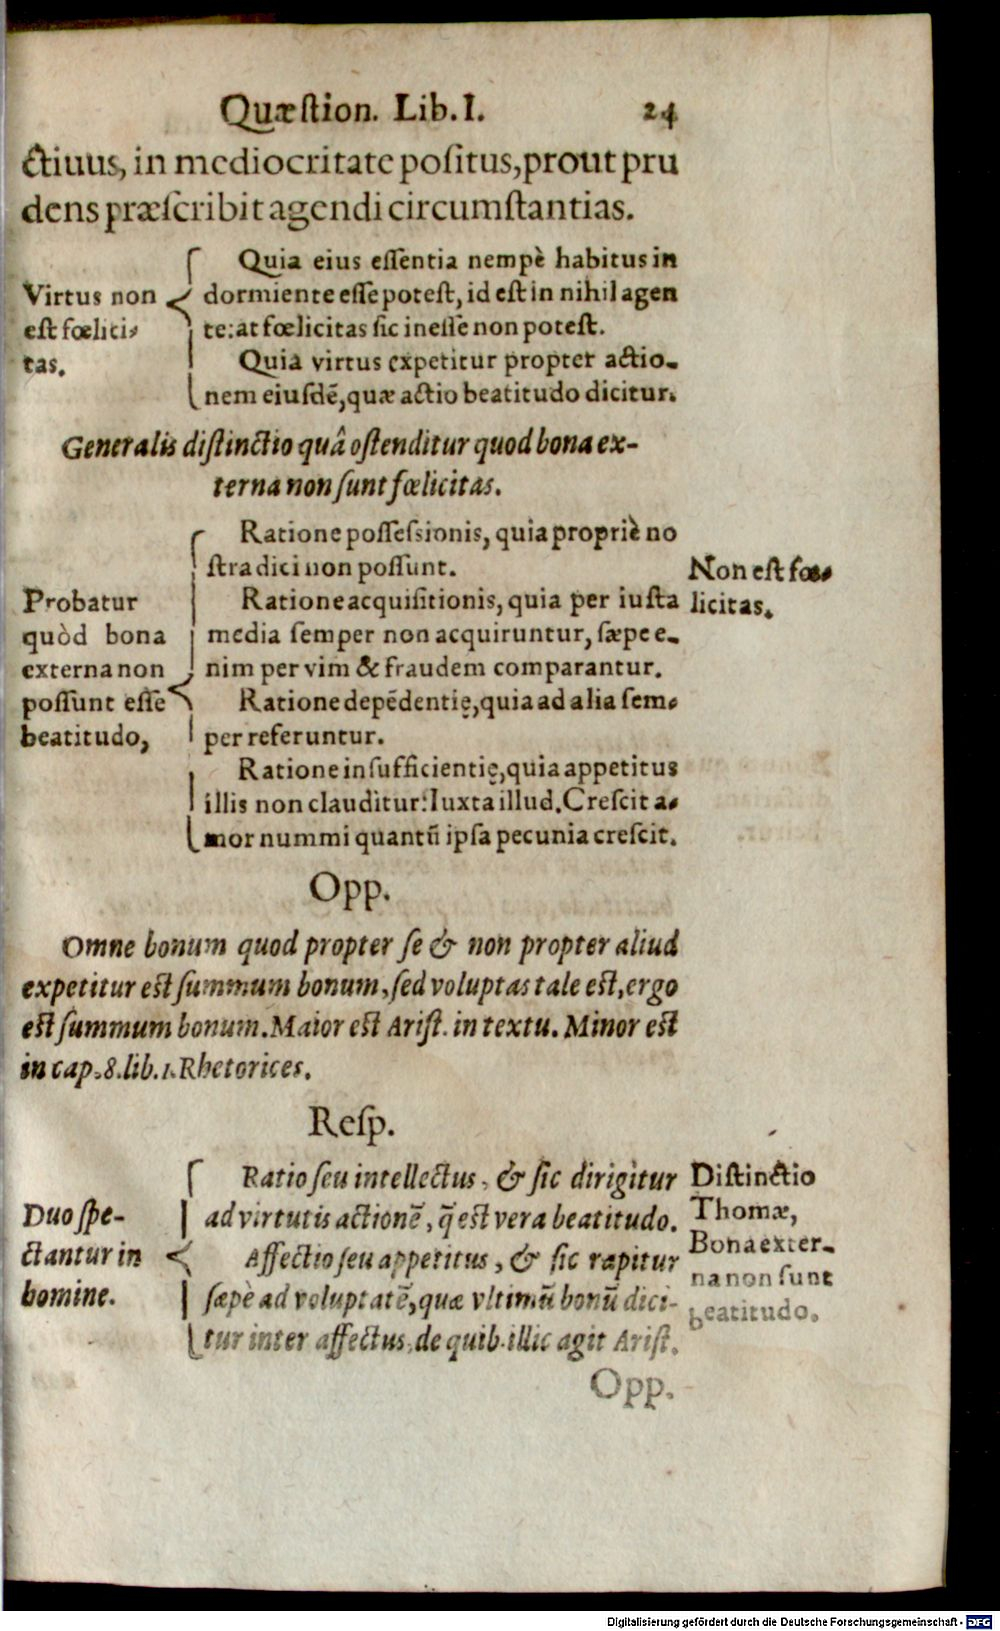 Quæſtion. Lib. I. 24
ctiuus, in mediocritate poſitus, prout pru
dens præſcribit agendi circumſtantias.
Virtus non
eſt fœlici-
tas.
Quia eius eſſentia nempè habitus in
dormiente eſſe poteſt, id eſt in nihil agen
te: at fœlicitas ſic ineſſe non poteſt.
Quia virtus expetitur propter actio-
nem eiuſdē, quæ actio beatitudo dicitur.
Generalis diſtinctio quâ oſtenditur quod bona ex-
terna non ſunt fœlicitas.
Probatur
quòd bona
externa non
poſſunt eſſe
beatitudo,
Ratione poſſeſsionis, quia propriè no
ſtra dici non poſſunt.
Ratione acquiſitionis, quia per iuſta
media ſemper non acquiruntur, ſæpe e-
nim per vim & fraudem comparantur.
Ratione depēdentię, quia ad alia ſem-
per referuntur.
Ratione inſufficientię, quia appetitus
illis non clauditur: Iuxta illud. Creſcit a-
mor nummi quantū ipſa pecunia creſcit.
Non eſt fœ-
licitas.
Opp.
Omne bonum quod propter ſe & non propter aliud
expetitur eſt ſummum bonum, ſed voluptas tale eſt, ergo
eſt ſummum bonum. Maior eſt Ariſt. in textu. Minor eſt
in cap. 8. lib. 1. Rhetorices.
Reſp.
Duo ſpe-
ctantur in
homine.
Ratio ſeu intellectus, & ſic dirigitur
ad virtutis actionē, q̄ eſt vera beatitudo.
Affectio ſeu appetitus, & ſic rapitur
ſæpè ad voluptatē, quæ vltimū bonū dici-
tur inter affectus, de quib. illic agit Ariſt.
Diſtinctio
Thomæ,
Bona exter-
na non ſunt
beatitudo.
Opp.
Digitalisierung gefördert durch die Deutsche Forschungsgemeinschaft - DFG